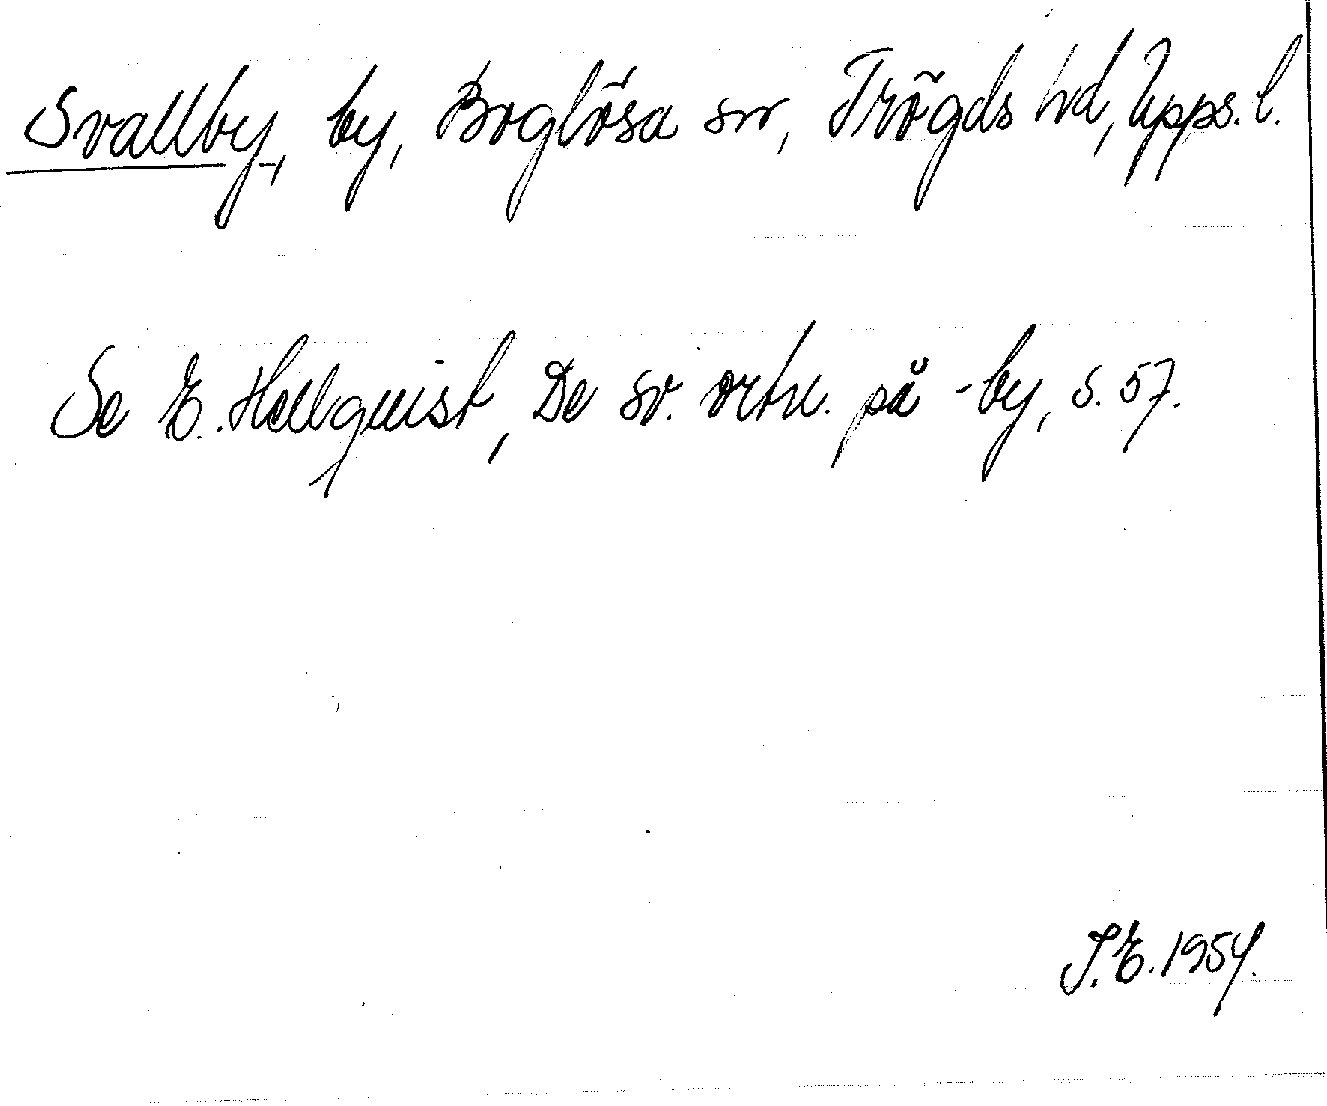 Svallby, by, Boglösa sn, Trögds hd, Upps. l.
Se E. Hellquist, De sv. ortn. på -by, s. 57.
I.E. 1954.